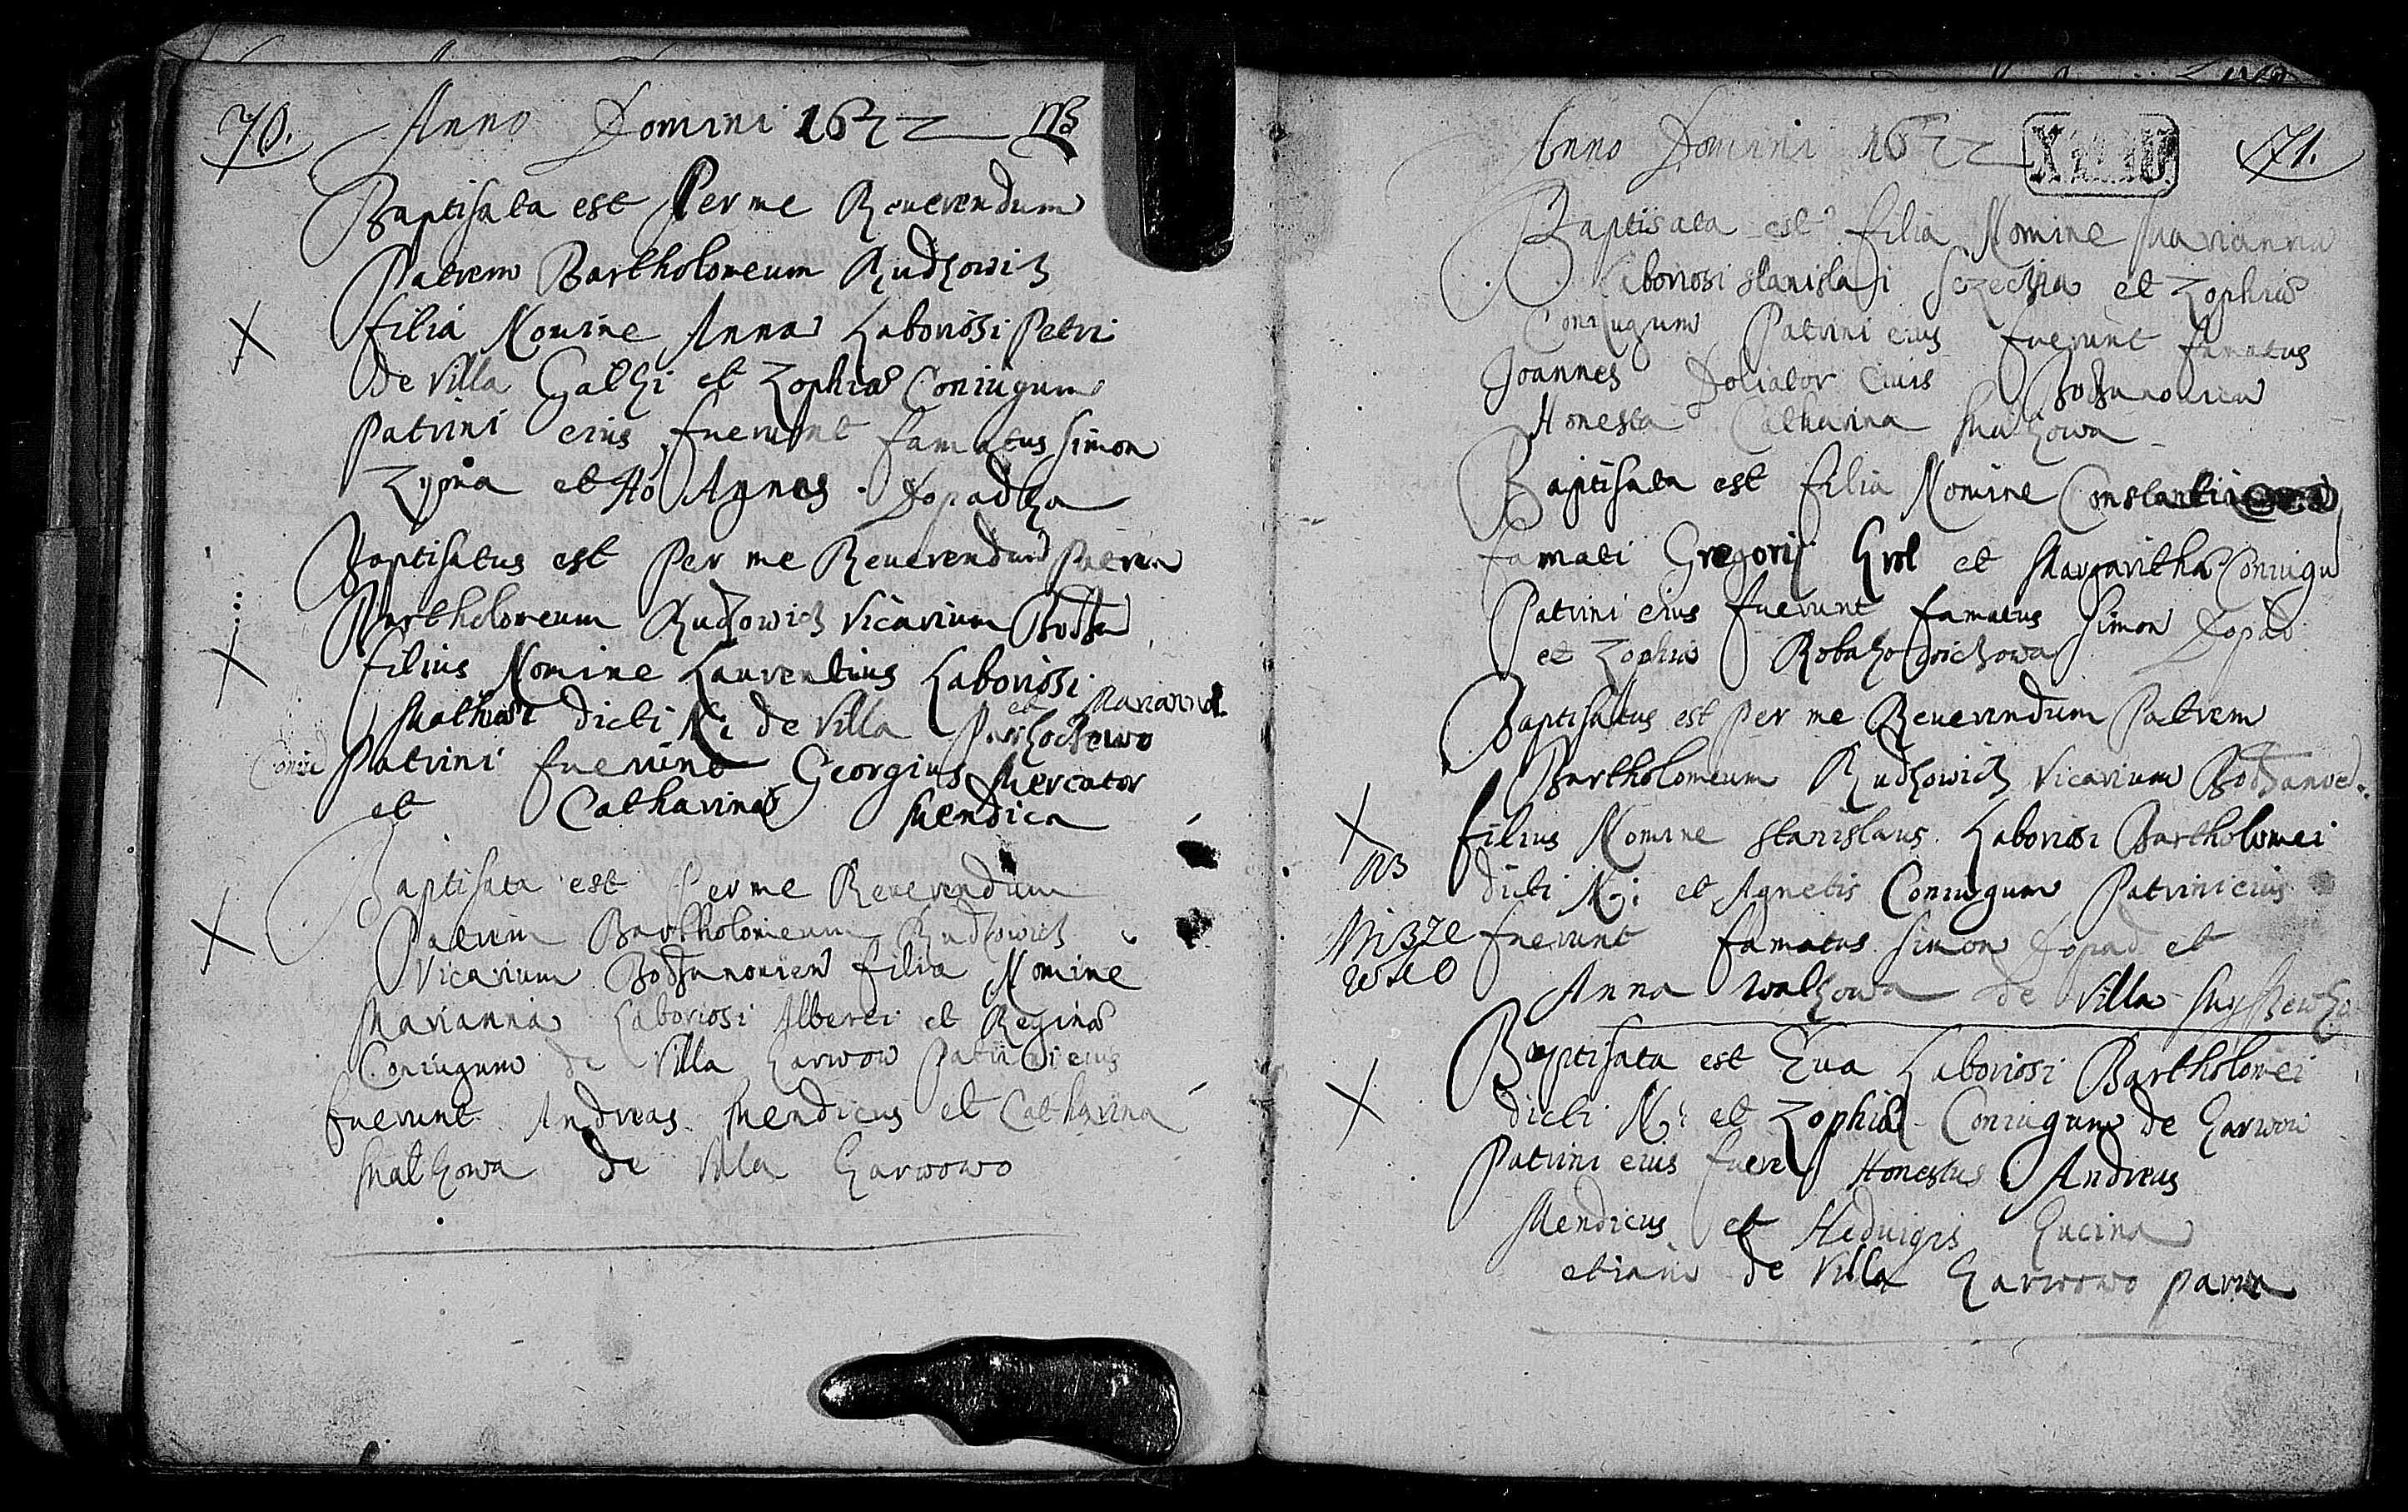 70. Anno Domini 1672 NB
Baptisata est Per me Reuerendum
Patrem Bartholomeum Rudkowicz
filia Nomine Anna Laboriosi Petri
de Villa Galki et Zophiæ Coniugum
Patrini eius fuerunt famatus Simon
Zyma et Ho Agnes Dopadka
Baptisatus est Per me Reuerendum Patrem
Bartholomeum Rudkowicz Vicarium Bodzan
filius Nomine Laurentius Laboriosi
Mathiæ dicti N: de Villa et Marianna
Coniu Patrini fuerunt Georgius Mercator
et Catharina Mendica
Baptisata est Per me Reuerendum
Patrem Bartholomeum Rudkowicz
Vicarium Bodzanouien filia Nomine
Marianna Laboriosi Alberti et Reginæ
Coniugum de Villa Garwow Patrini eius
fuerunt Andreas Mendicus et Catharina
Malkowa de Villa Garwowo
Anno Domini 1672 71.
Baptisata est filia Nomine Marianna
Laboriosi Stanislai et Zophiæ
Coniugum Patrini eius fuerunt famatus
Joannes Doliator Ciuis Bodzanouien
Honesta Catharina
Baptisata est filia Nomine
famati Gregorij Krol et Margaritha Coniugu
Patrini eius fuerunt famatus Simon Dopad
et Zophia
Baptisatus est Per me Reuerendum Patrem
Bartholomeum Rudkowicz Vicarium Bodzanoe
filius Nomine Stanislaus Laboriosi Bartholomei
NB dicti N: et Agnetis Coniugum Patrini eius
fuerunt famatus Simon Dopad et
Anna Walkowa de Villa
Baptisata est Eua Laboriosi Bartholomei
dicti N: et Zophiæ Coniugum de Garwow
Patrini eius fuere Honestus Andreas
Mendicus et Heduigis Lucina
etiam de Villa Garwowo parua